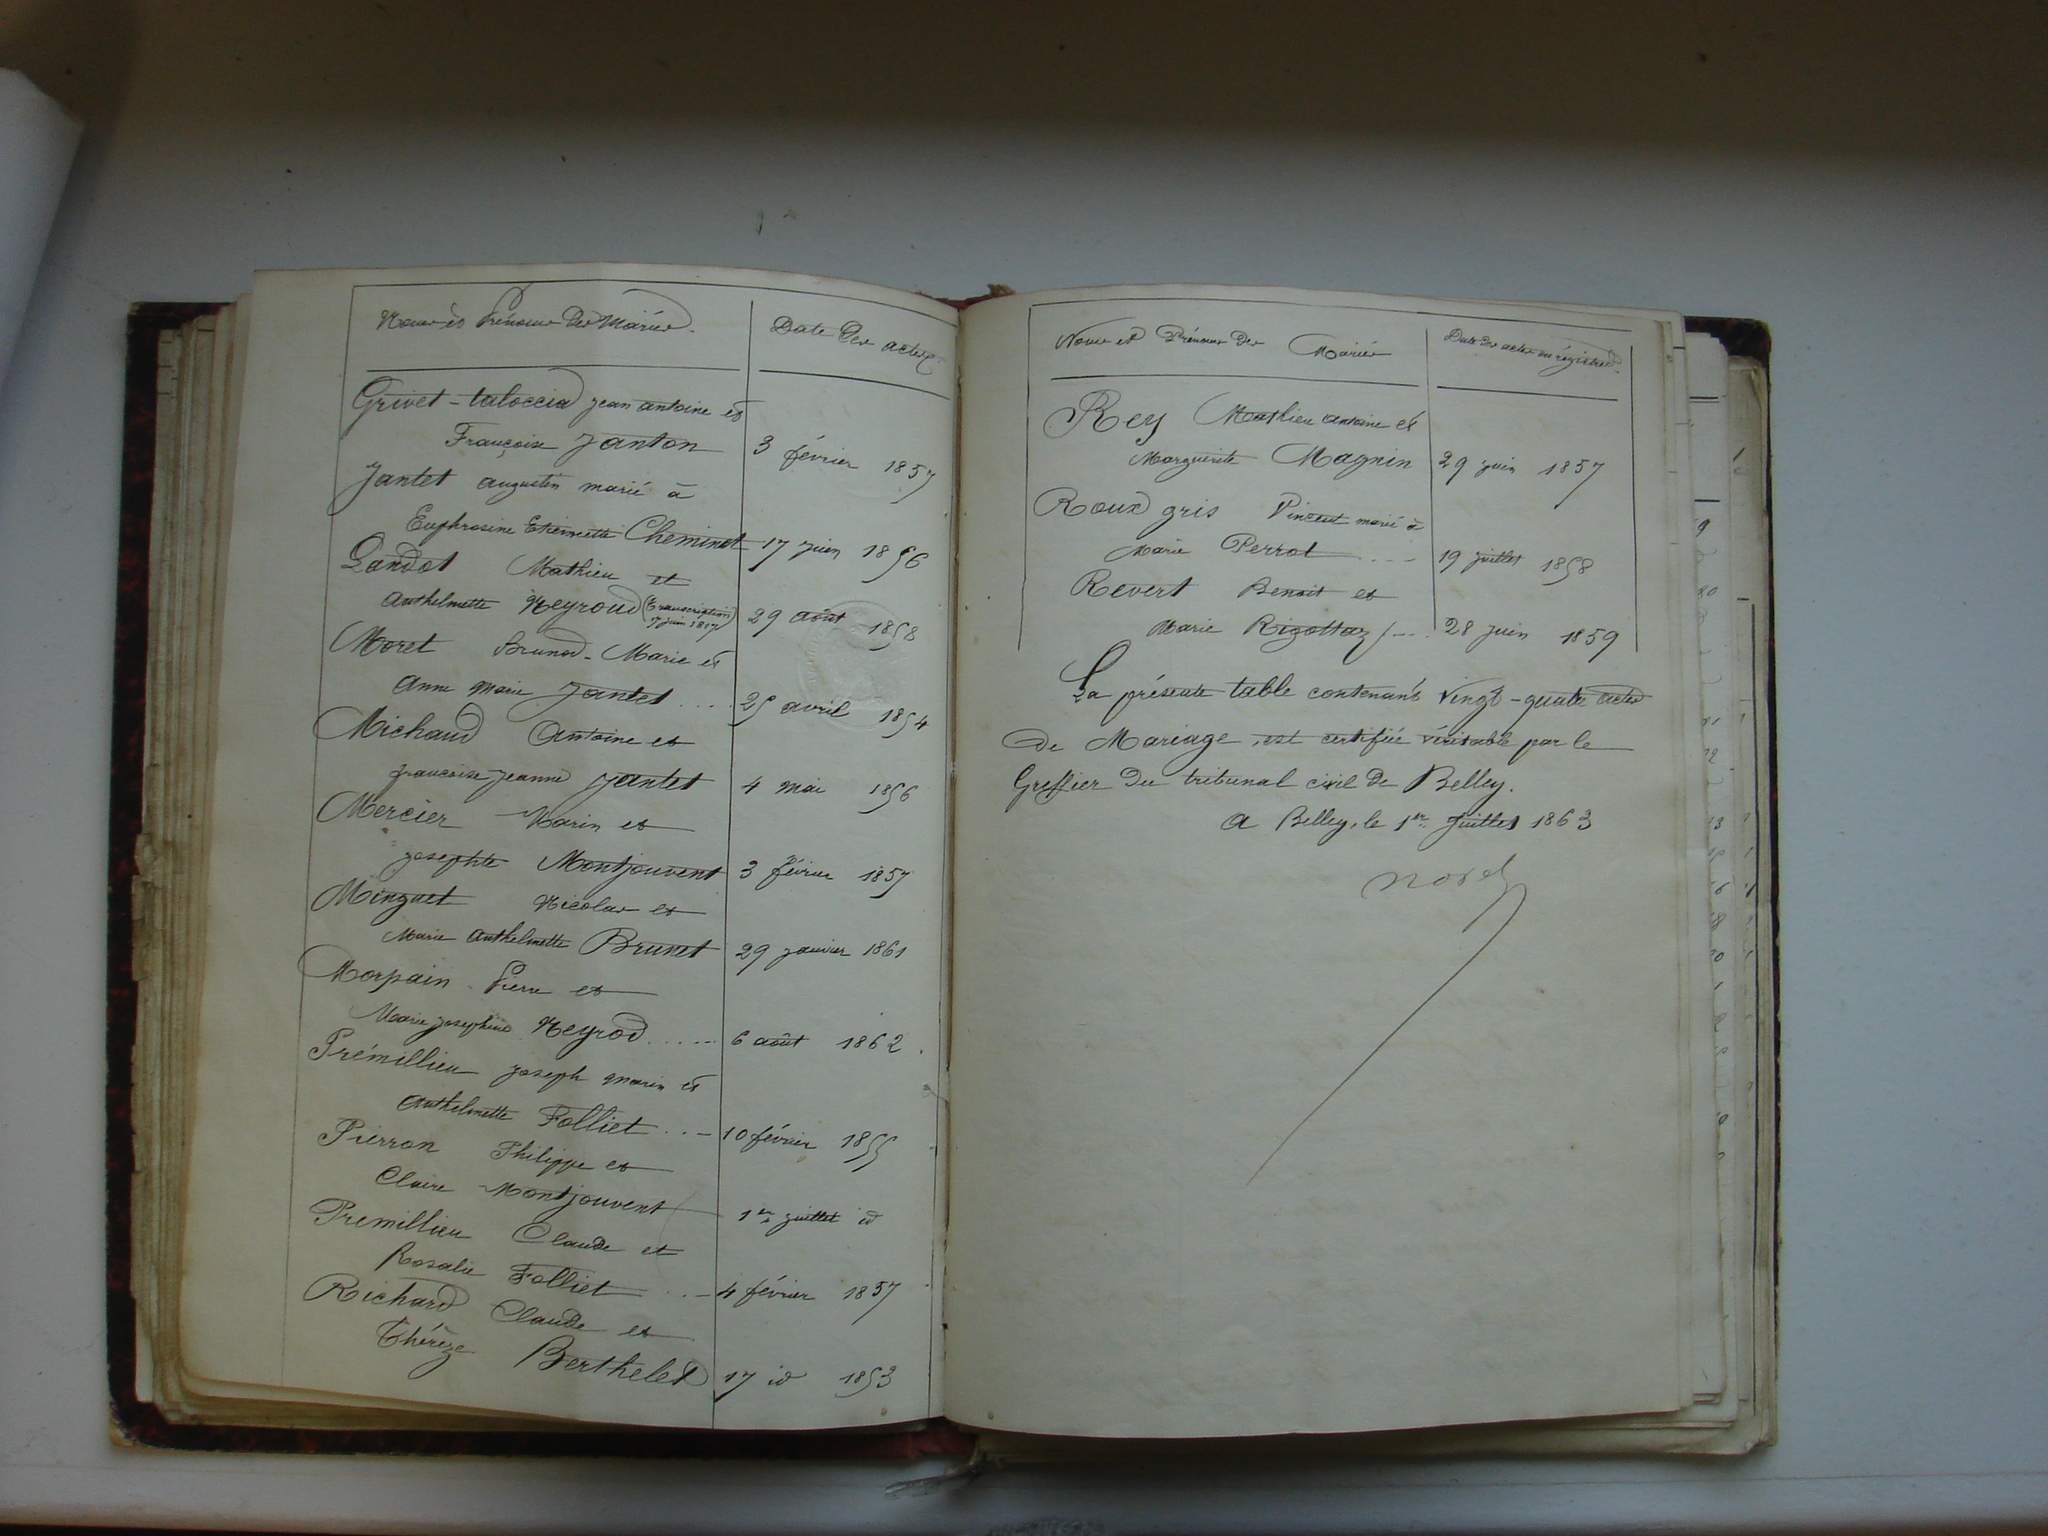 Noms et Prénoms des Mariés.
Date des actes
Grivet-taloccia jean antoine et
Françoise Janton
3 février 1857
Jantet augustin marié à
Euphrosine Etiennette Cheminet
17 juin 1856
Landot Mathieu et
anthelmette Neyroud (Transcription
7 juin 1817)
29 août 1858
Moret Brunod-Marie et
anne marie Jantet ....
25 avril 1854
Michaud Antoine et
françoise jeanne Jantet
4 mai 1856
Mercier Marin et
josephte Montjouvent
3 février 1857
Minguet Nicolas et
Marie anthelmette Brunet
29 janvier 1861
Morpain Pierre et
Marie josephine Neyrod .....
6 août 1862
Prémillieu joseph marin et
anthelmette Folliet ...
10 février 1855
Pierron Philippe et
Claire Montjouvent
1er juillet id
Premillieu Claude et
Rosalie Folliet ...
4 février 1857
Richard Claude et
Thérèze Berthelet
17 id 1853
Noms et Prénoms des Mariés
Date des actes ou régistres.
Rey Mathieu antoine et
Marguerite Magnin
29 juin 1857
Roux gris Vincent marié à
Marie Perrot ...
19 juillet 1858
Revert Benoit et
Marie Rigottaz
28 juin 1859
La présente table contenant vingt-quatre actes
de Mariage, est certifiée véritable par le
Greffier du tribunal civil de Belley.
a Belley, le 1er juillet 1863